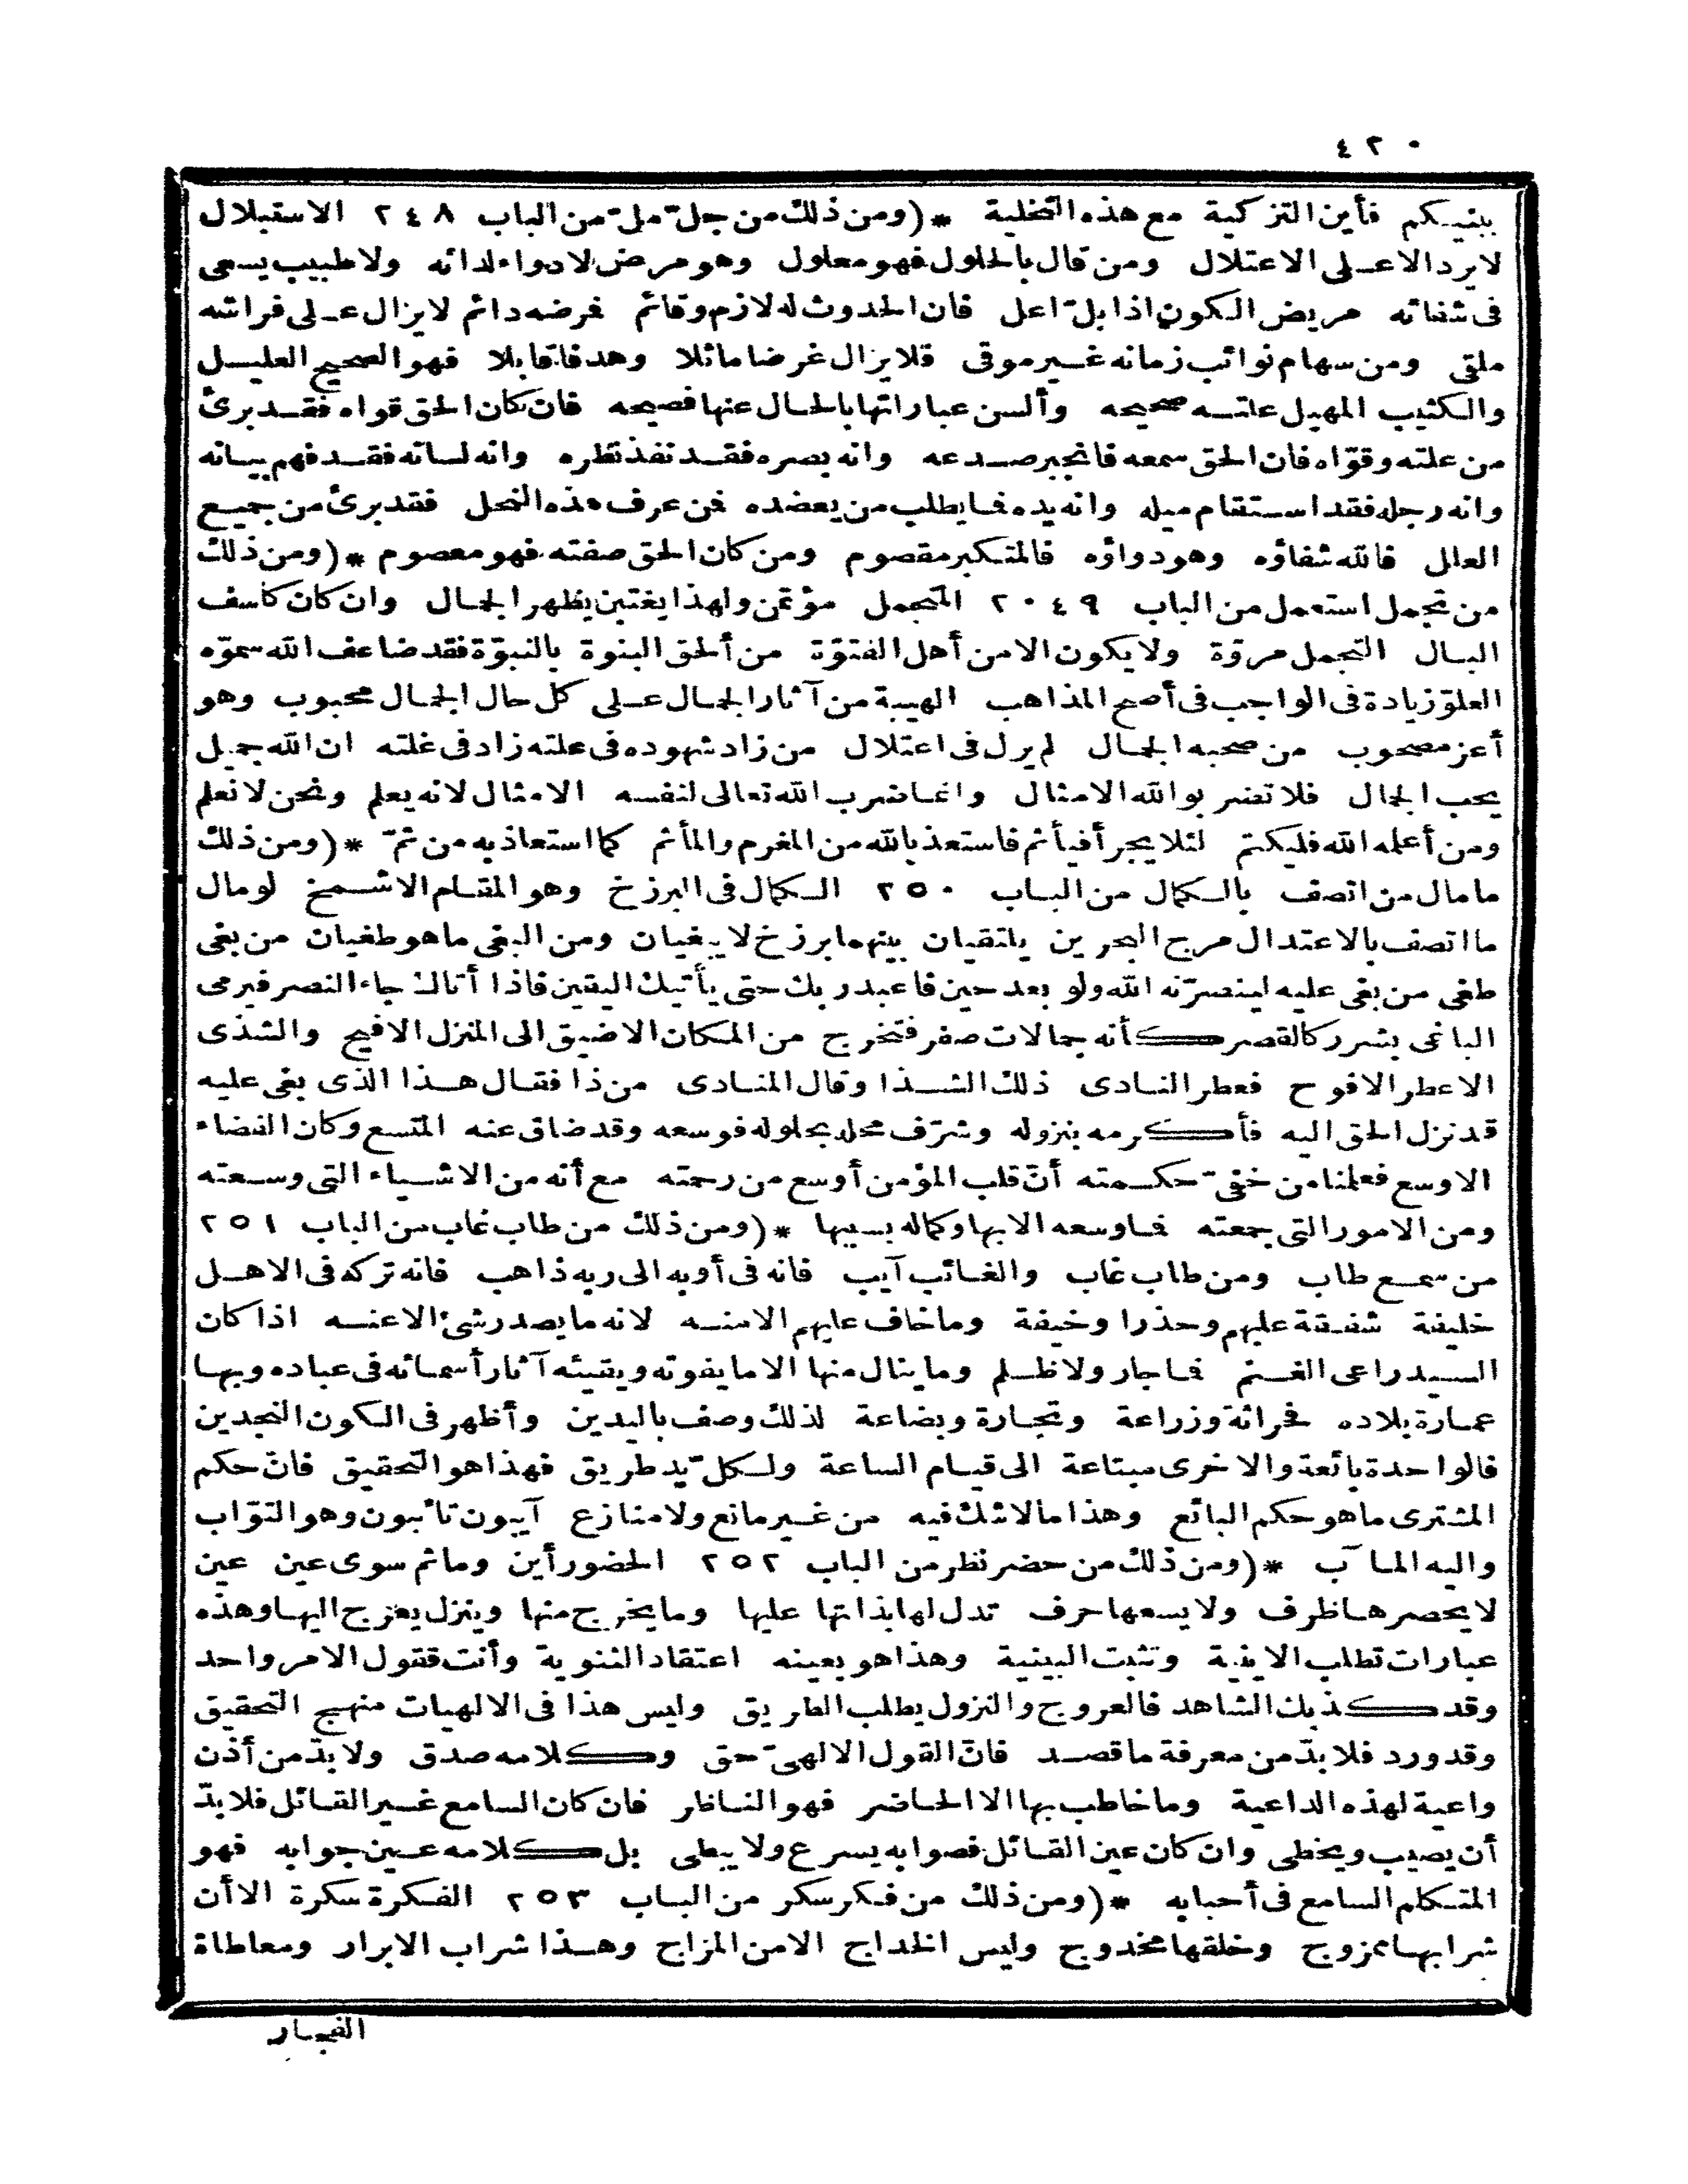 ٤٢٠
ببنيكم فأين التزكية مع هذه التخلية *(ومن ذلك من جلّ ملّ من الباب ٢٤٨ الاستبلال
لا يرد الا على الاعتلال ومن قال بالحلول فهو معلول وهو مرض لا دواء لدائه ولا طبيب يسعى
فى شفائه مريض الكون اذا بلّ اعل فان الحدوث له لازم وقائم فرضه دائم لا يزال على فراشه
ملقى ومن سهام نوائب زمانه غير موقى فلا يزال غرضا مائلا وهدفا قابلا فهو الصحيح العليل
والكثيب المهيل علته صحيحه وألسن عباراتها بالحال عنها فصيحه فان كان الحق قواه فقد برئ
من علته وقوّاه فان الحق سمعه فانجبر صدعه وانه بصره فقد نفذ نظره وانه لسانه فقد فهم بيانه
وانه رجله فقد استقام ميله وانه يده فما يطلب من يعضده فمن عرف هذه النحل فقد برئ من جميع
العلل فالله شفاؤه وهو دواؤه فالمتكبر مقصوم ومن كان الحق صفته فهو معصوم *(ومن ذلك
من تجمل استعمل من الباب ٢٠٤٩ المتجمل مؤتمن ولهذا يغتبن يظهر الجمال وان كان كاسف
البال التجمل مروّة ولا يكون الا من أهل الفتوّة من ألحق البنوة بالنبوّة فقد ضاعف الله سموّه
العلوّ زيادة فى الواجب فى أصح المذاهب الهيبة من آثار الجمال على كل حال الجمال محبوب وهو
أعز مصحوب من صحبه الجمال لم يزل فى اعتلال من زاد شهوده فى علته زاد فى غلته ان الله جميل
يحب الجمال فلا تضربوا لله الامثال وانما ضرب الله تعالى لنفسه الامثال لانه يعلم ونحن لا نعلم
ومن أعلمه الله فليكتم لئلا يجرأ فيأثم فاستعذ بالله من المغرم والمأثم كما استعاذ به من ثمّ *(ومن ذلك
ما مال من اتصف بالكمال من الباب ٢٥٠ الكمال فى البرزخ وهو المقام الاشمخ لو مال
ما اتصف بالاعتدال مرج البحرين يلتقيان بينهما برزخ لا يبغيان ومن البغى ما هو طغيان من بغى
طغى من بغى عليه لينصرنّه الله ولو بعد حين فاعبد ربك حتى يأتيك اليقين فاذا أتاك جاء النصر فيرمى
الباغى بشرر كالقصر كأنه جمالات صفر فتخرج من المكان الاضيق الى المنزل الافيح والشذى
الاعطر الافوح فعطر النادى ذلك الشذا وقال المنادى من ذا فقال هذا الذى بغى عليه
قد نزل الحق اليه فأكرمه بنزوله وشرّف محله بحلوله فوسعه وقد ضاق عنه المتسع وكان الفضاء
الاوسع فعلمنا من خفىّ حكمته أنّ قلب المؤمن أوسع من رحمته مع أنه من الاشياء التى وسعته
ومن الامور التى جمعته فما وسعه الا بها وكماله بسببها *(ومن ذلك من طاب غاب من الباب ٢٥١
من سمع طاب ومن طاب غاب والغائب آيب فانه فى أوبه الى ربه ذاهب فانه تركه فى الاهل
خليفة شفقة عليهم وحذرا وخيفة وما خاف عليهم الا منه لانه ما يصدر شئ الا عنه اذا كان
السيد راعى الغنم فما جار ولا ظلم وما ينال منها الا ما يفوته ويقيته آثار أسمائه فى عباده وبها
عمارة بلاده فحراثة وزراعة وتجارة وبضاعة لذلك وصف باليدين وأظهر فى الكون النجدين
فالواحدة بائعة والاخرى مبتاعة الى قيام الساعة ولكلّ يد طريق فهذا هو التحقيق فانّ حكم
المشترى ما هو حكم البائع وهذا ما لا شك فيه من غير مانع ولا منازع آيبون تائبون وهو التوّاب
واليه المآب *(ومن ذلك من حضر نظر من الباب ٢٥٢ الحضور أين وما ثم سوى عين عين
لا يحصرها ظرف ولا يسعها حرف تدل لها بذاتها عليها وما يخرج منها وينزل يعرج اليها وهذه
عبارات تطلب الاينية وتثبت البينية وهذا هو بعينه اعتقاد الثنوية وأنت فقول الامر واحد
وقد كذبك الشاهد فالعروج والنزول يطلب الطريق وليس هذا فى الالهيات منهج التحقيق
وقد ورد فلا بدّ من معرفة ما قصد فانّ القول الالهىّ حق وكلامه صدق ولا بدّ من أذن
واعية لهذه الداعية وما خاطب بها الا الحاضر فهو الناظر فان كان السامع غير القائل فلا بدّ
أن يصيب ويخطى وان كان عين القائل فصوابه يسرع ولا يبطى بل كلامه عين جوابه فهو
المتكلم السامع فى أحبابه *(ومن ذلك من فكر سكر من الباب ٢٥٣ الفكرة سكرة الا أن
شرابها ممزوج وخلقها مخدوج وليس الخداج الا من المزاج وهذا شراب الابرار ومعاطاة
الفجار